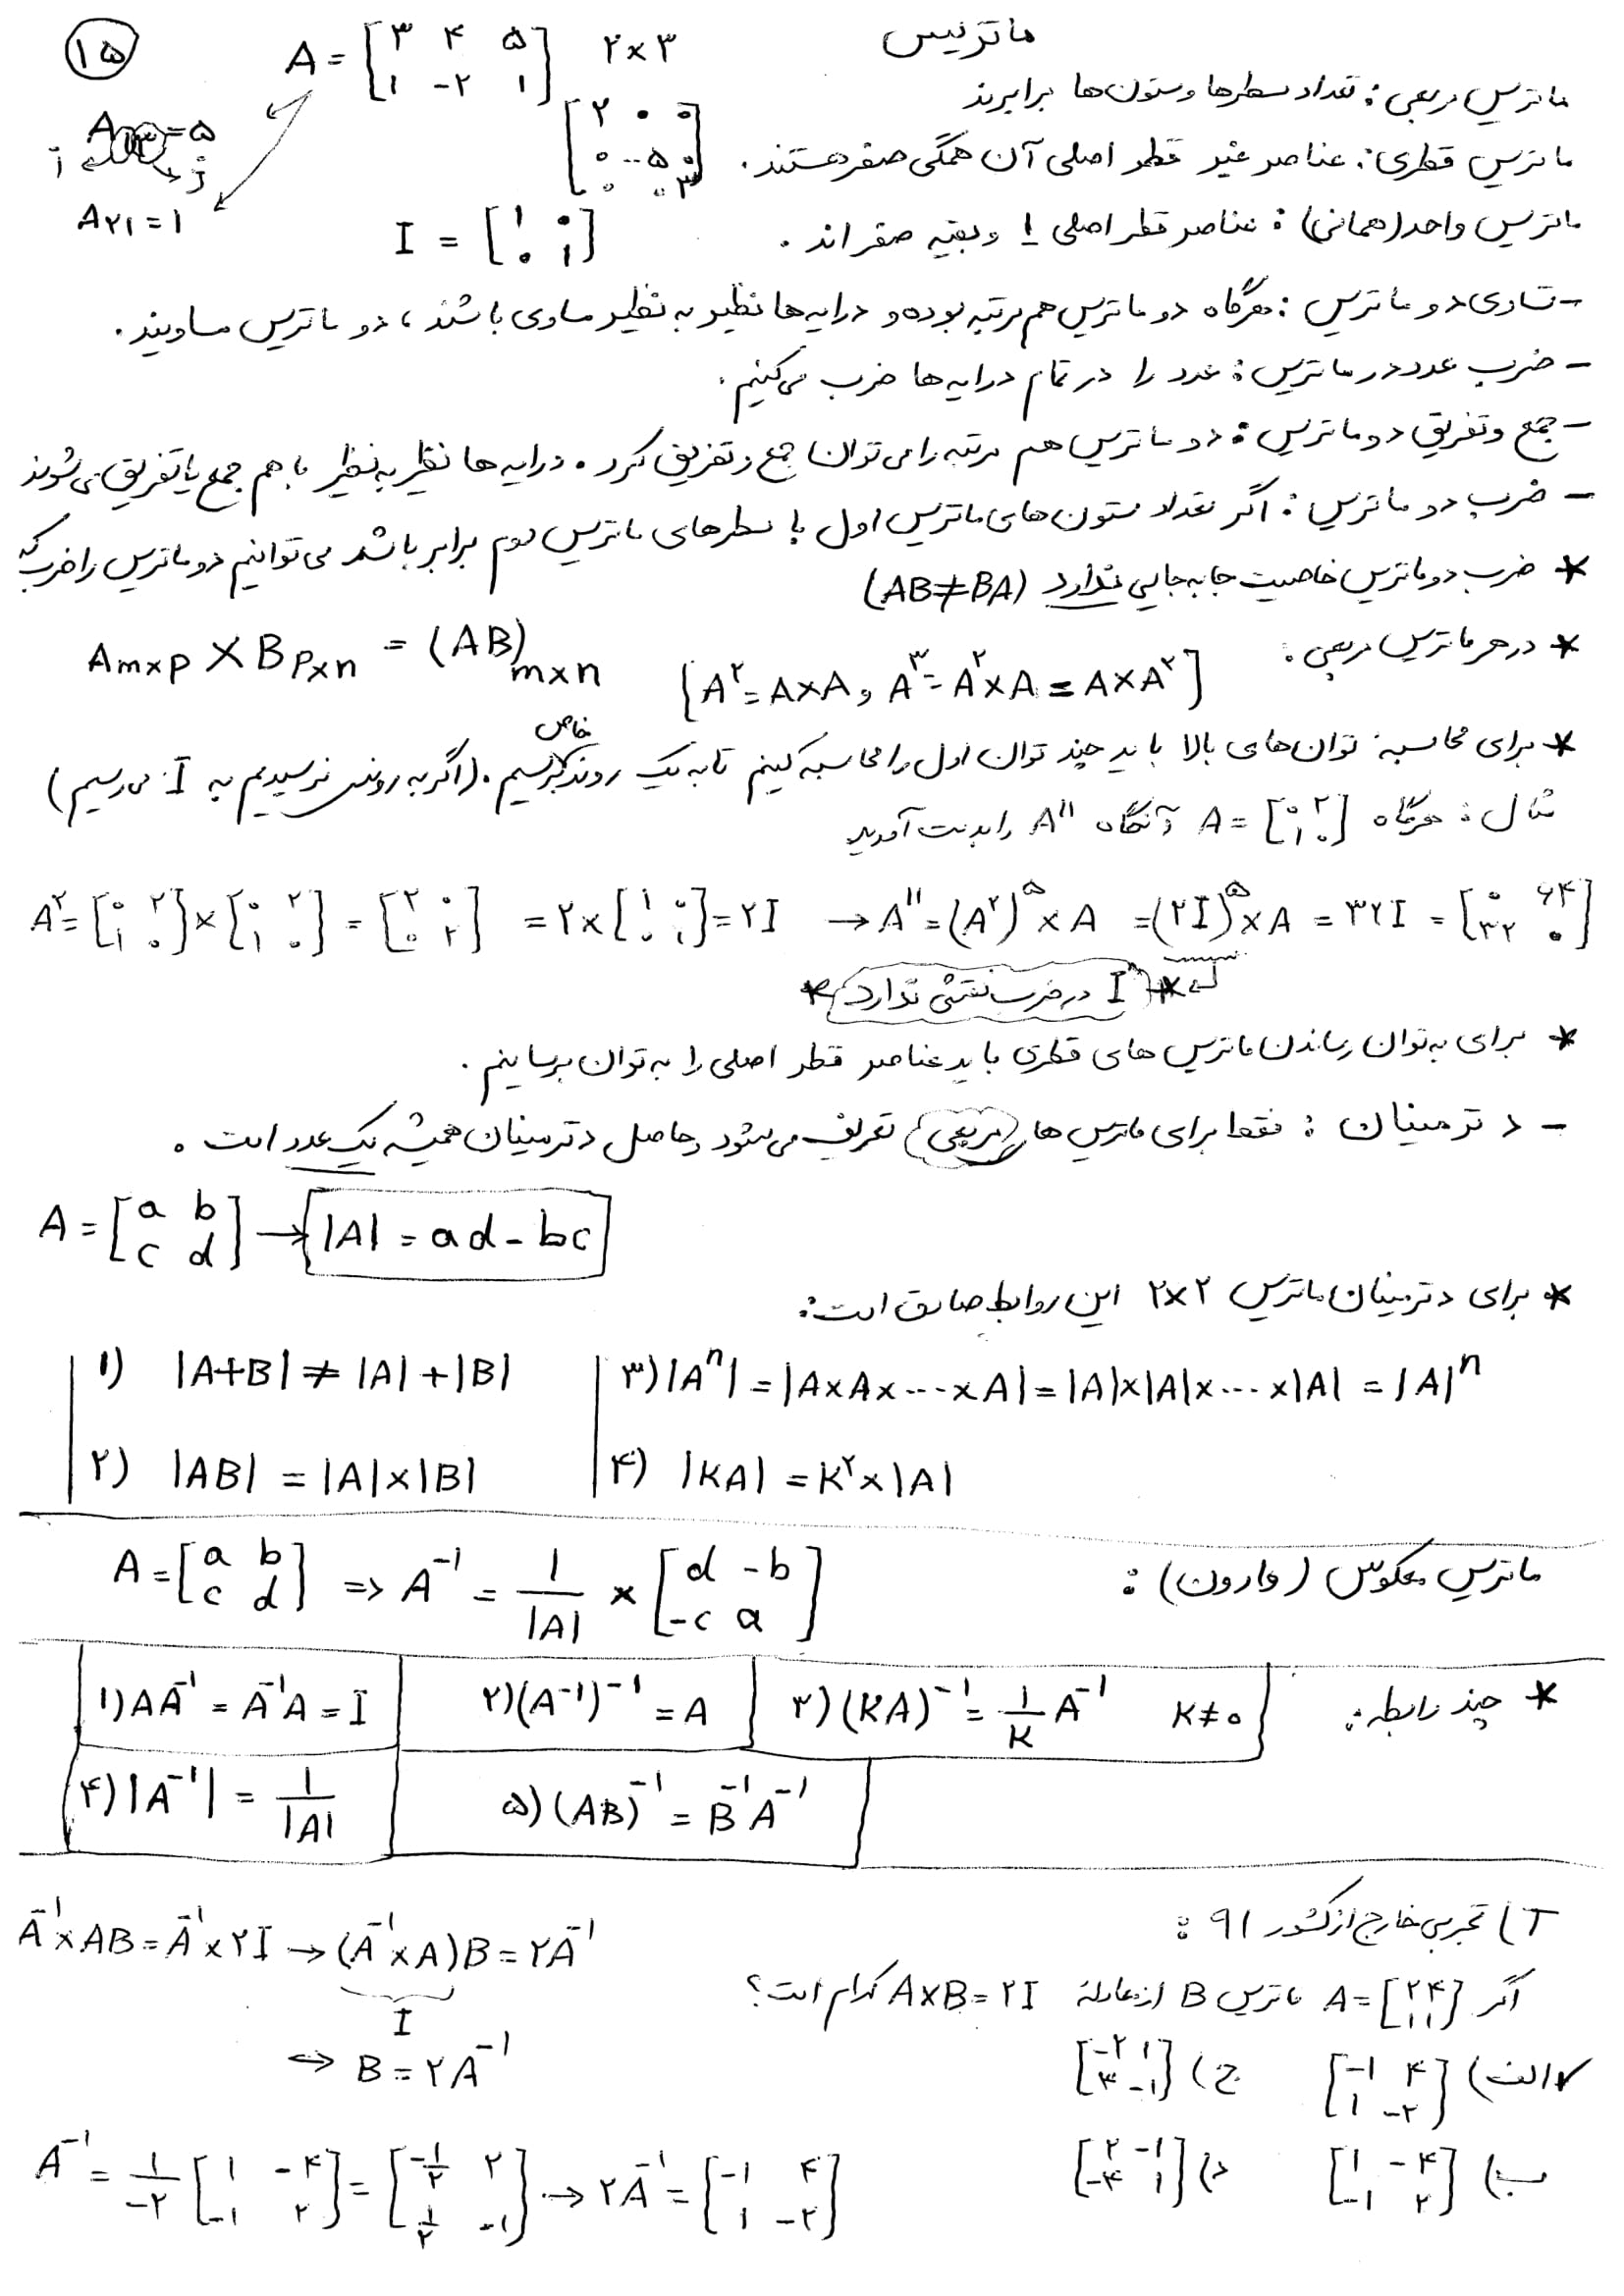 ۱۵
ماتریس
A = [۳ ۴ ۵ ; ۱ -۲ ۱] ۲×۳
ماتریس مربعی : تعداد سطرها و ستون‌ها برابرند
A۱۳ = ۵
i j
A۲۱ = ۱
ماتریس قطری : عناصر غیر قطر اصلی آن همگی صفر هستند . [۲ ۰ ۰ ; ۰ -۵ ۰ ; ۰ ۰ ۳]
ماتریس واحد (همانی) : عناصر قطر اصلی ۱ و بقیه صفر اند . I = [۱ ۰ ; ۰ ۱]
- تساوی دو ماتریس : هرگاه دو ماتریس هم مرتبه بوده و درایه‌ها نظیر به نظیر مساوی باشند ، دو ماتریس مساویند .
- ضرب عدد در ماتریس : عدد را در تمام درایه‌ها ضرب می‌کنیم .
- جمع و تفریق دو ماتریس : دو ماتریس هم مرتبه را می‌توان جمع و تفریق کرد . درایه‌ها نظیر به نظیر با هم جمع یا تفریق می‌شوند
- ضرب دو ماتریس : اگر تعداد ستون‌های ماتریس اول با سطرهای ماتریس دوم برابر باشد می‌توانیم دو ماتریس را ضرب کنیم
* ضرب دو ماتریس خاصیت جابه‌جایی ندارد (AB≠BA)
* در هر ماتریس مربعی : [A² = A×A , A³ = A²×A = A×A²]
Am×p × Bp×n = (AB)m×n
* برای محاسبه توان‌های بالا باید چند توان اول را محاسبه کنیم تا به یک روند خاص برسیم . (اگر به روندی نرسیدیم به I می‌رسیم)
مثال : هرگاه A = [۰ ۲ ; ۱ ۰] آنگاه A¹¹ را بدست آورید
A² = [۰ ۲ ; ۱ ۰] × [۰ ۲ ; ۱ ۰] = [۲ ۰ ; ۰ ۲] = ۲×[۱ ۰ ; ۰ ۱] = ۲I → A¹¹ = (A²)⁵ × A = (۲I)⁵ × A = ۳۲I = [۰ ۶۴ ; ۳۲ ۰]
* I در ضرب نقشی ندارد *
* برای به توان رساندن ماتریس های قطری باید عناصر قطر اصلی را به توان برسانیم .
- دترمینان : فقط برای ماتریس ها (مربعی) تعریف می‌شود و حاصل دترمینان همیشه یک عدد است .
A = [a b ; c d] → |A| = ad - bc
* برای دترمینان ماتریس ۲×۲ این روابط صادق است :
۱) |A+B| ≠ |A|+|B|
۳) |Aⁿ| = |A×A×...×A| = |A|×|A|×...×|A| = |A|ⁿ
۲) |AB| = |A|×|B|
۴) |KA| = K²×|A|
ماتریس معکوس (وارون) :
A = [a b ; c d] ⇒ A⁻¹ = 1/|A| × [d -b ; -c a]
* چند رابطه :
۱) AA⁻¹ = A⁻¹A = I
۲) (A⁻¹)⁻¹ = A
۳) (KA)⁻¹ = 1/K A⁻¹ K≠۰
۴) |A⁻¹| = 1/|A|
۵) (AB)⁻¹ = B⁻¹A⁻¹
T) تجربی خارج از کشور ۹۱ :
اگر A = [۲ ۴ ; ۱ ۱] ماتریس B از معادله A×B = ۲I کدام است ؟
✓الف) [-۱ ۴ ; ۱ -۲] ج) [-۲ ۱ ; ۴ -۱]
ب) [۱ -۴ ; -۱ ۲] د) [۲ -۱ ; -۴ ۱]
A⁻¹×AB = A⁻¹×۲I → (A⁻¹×A)B = ۲A⁻¹
I
⇔ B = ۲A⁻¹
A⁻¹ = ۱/-۲ [۱ -۴ ; -۱ ۲] = [-۱/۲ ۲ ; ۱/۲ -۱] → ۲A⁻¹ = [-۱ ۴ ; ۱ -۲]